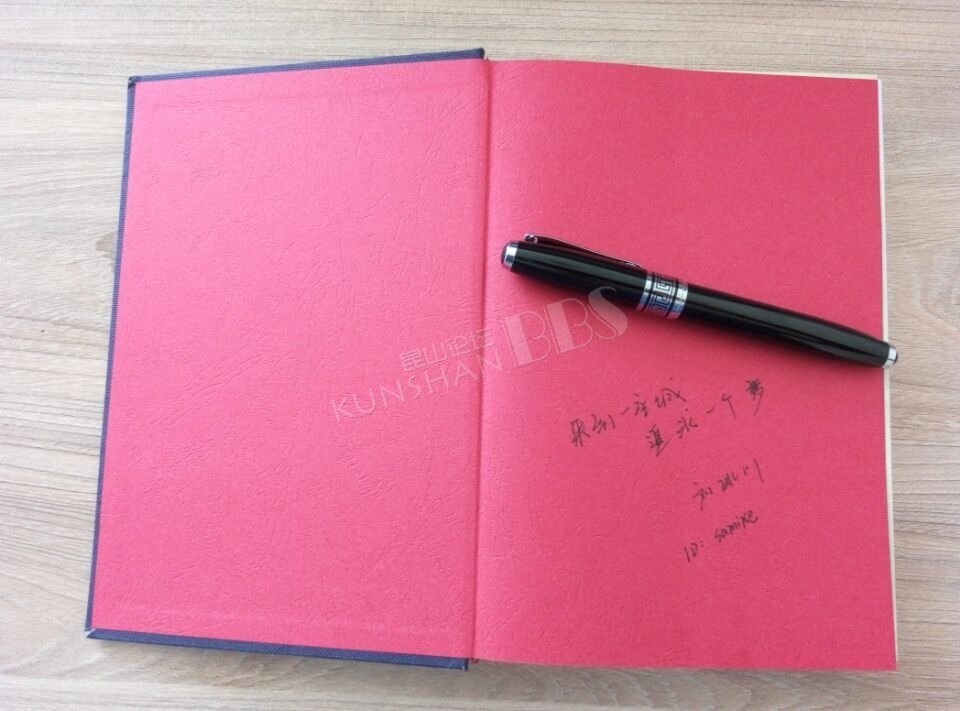 昆山论坛
KUNSHAN BBS
来到一座城
追求一个梦
ID: samixe